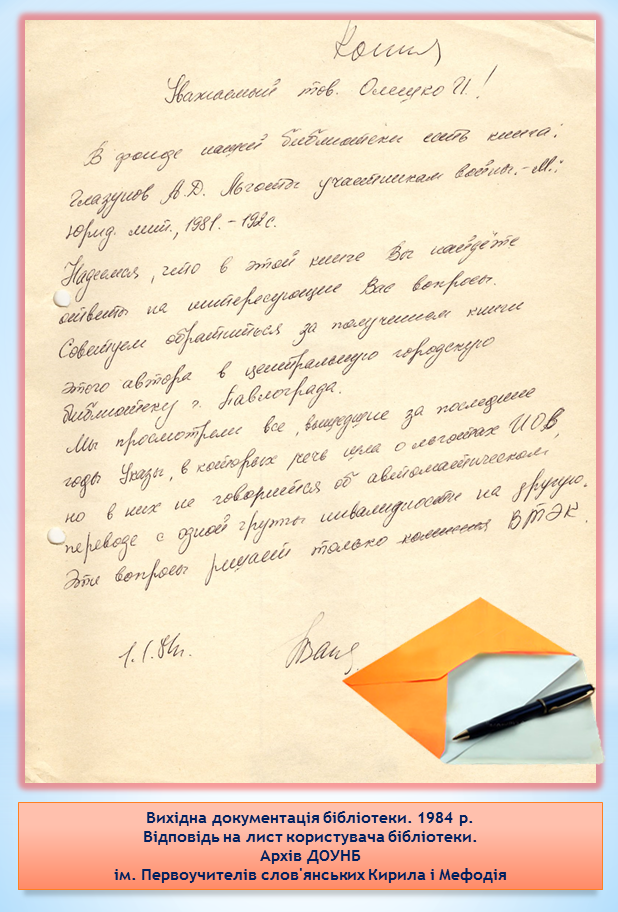 Копия
Уважаемый тов. Олещко И.!
В фонде нашей библиотеки есть книга:
Глазунов А.Д. Льготы участникам войны. - М.:
Юрид. лит., 1981. - 192с.
Надеемся, что в этой книге Вы найдёте
ответы на интересующие Вас вопросы.
Советуем обратиться за получением книги
этого автора в центральную городскую
библиотеку г. Павлограда.
Мы просмотрели все, вышедшие за последние
годы Указы, в которых речь шла о льготах ИОВ,
но в них не говорится об автоматическом
переводе с одной группы инвалидности на другую.
Эти вопросы решает только комиссия ВТЭК.
Вихідна документація бібліотеки. 1984 р.
Відповідь на лист користувача бібліотеки.
Архів ДОУНБ
ім. Первоучителів слов'янських Кирила і Мефодія